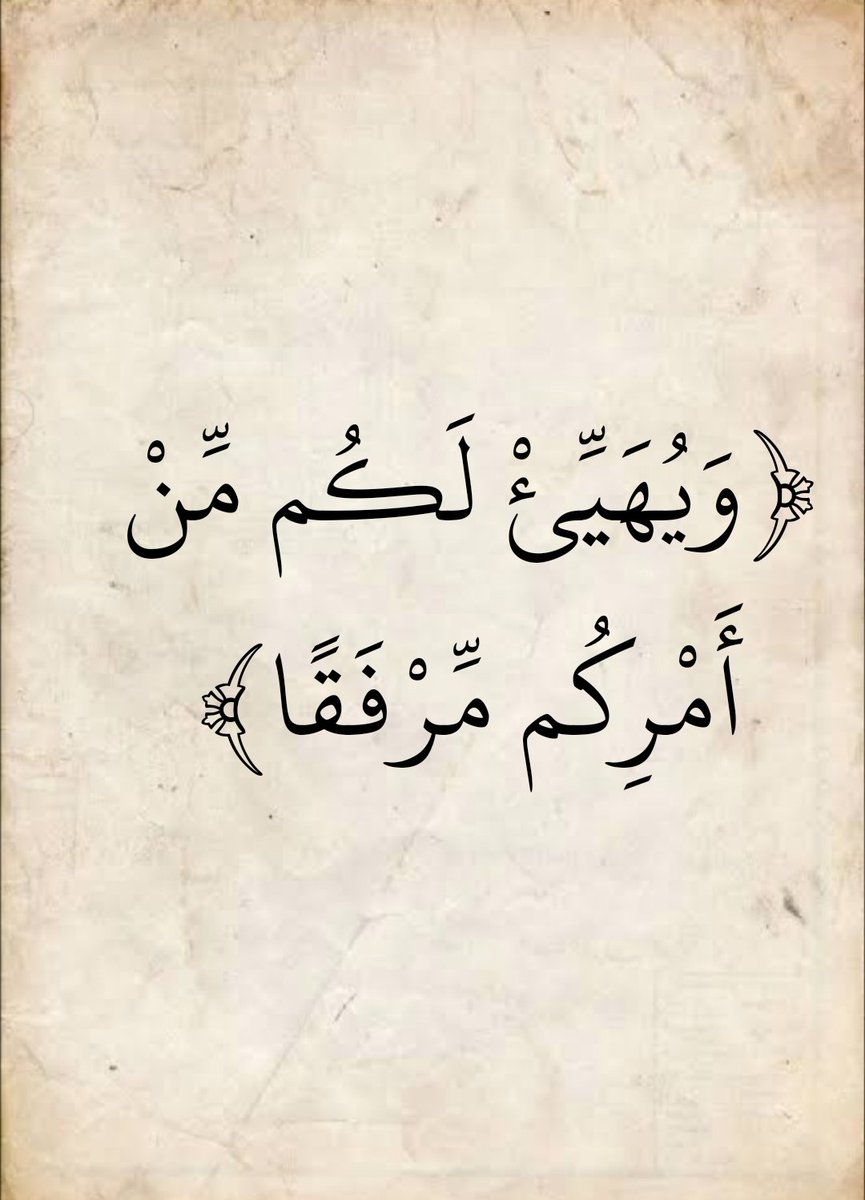 ﴿وَيُهَيِّئْ لَكُم مِّنْ
أَمْرِكُم مِّرْفَقًا﴾